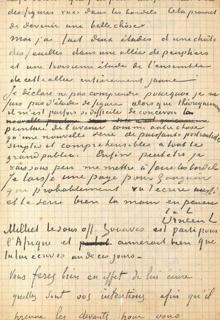 des figures vues dans les bordels. Cela promet
de devenir une belle chose.
Moi j'ai fait deux études d'une chute
des feuilles dans une allée de peupliers
et une troisième étude de l'ensemble
de cette allée entièrement jaune.
Je déclare ne pas comprendre pourquoi je ne
fais pas d'études de figure alors que théoriquement
il m'est parfois si difficile de concevoir la
peinture de l'avenir comme autre chose
qu'une nouvelle série de portraitistes
simples et compréhensibles à tout le
grand public. Enfin peut-être je
vais sous peu me mettre à faire les bordels
Je laisse une page pour Gauguin
qui probablement va t'écrire aussi
et te serre bien la main en pensée
t. à t.
Vincent
Milliet le sous off. Zouaves est parti pour
l'Afrique et aimerait bien que
tu lui écrives un de ces jours.
Vous ferez bien en effet de lui écrire
quelles sont vos intentions afin qu'il
prenne les devants pour vous